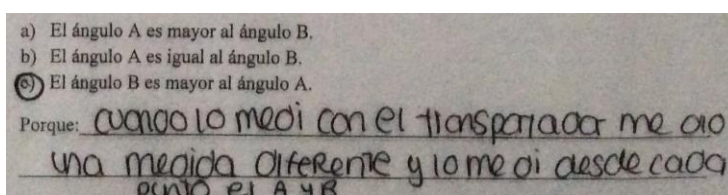 a) El ángulo A es mayor al ángulo B.
b) El ángulo A es igual al ángulo B.
c) El ángulo B es mayor al ángulo A.
Porque: cuando lo medi con el transportador me dio
una medida diferente y lo medi desde cada
punto el A y B